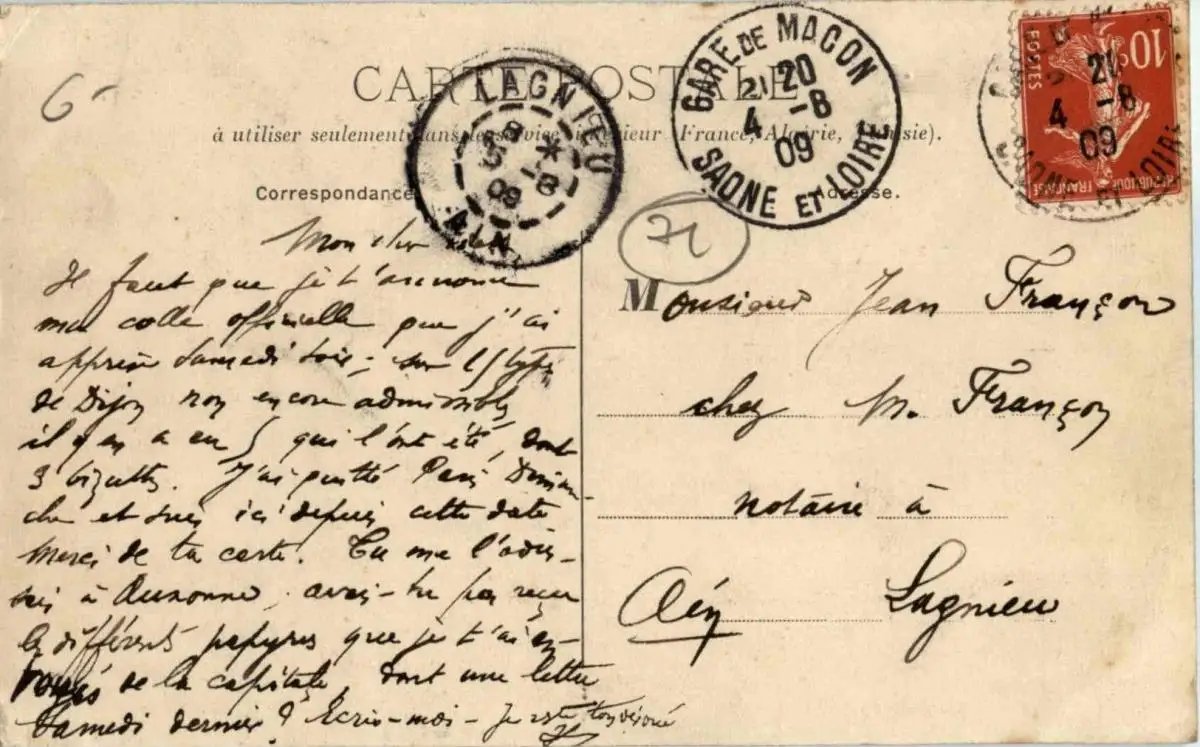 CARTE POSTALE
à utiliser seulement dans le service intérieur (France, Algérie, Tunisie).
Correspondance
Adresse.
LAGNIEU
AIN
5 -8
09
GARE DE MACON
21 20
4 -8
09
SAONE ET LOIRE
10c
POSTES
REPUBLIQUE FRANÇAISE
21
4 -8
09
SAONE ET LOIRE
6-
71
Mon cher
Il faut que je t'annonce
ma colle officielle que j'ai
apprise samedi soir ; sur 15 types
de Dijon non encore admissibles
il y en a eu 5 qui l'ont été, dont
3 bizuths. J'ai quitté Paris Diman-
che et suis ici depuis cette date
Merci de ta carte. Tu me l'adres-
sais à Auxonne, avais-tu pas reçu
les différents papyrus que je t'ai en-
voyés de la capitale, dont une lettre
Samedi dernier ? Écris-moi - Je reste ton dévoué
Monsieur Jean Françon
chez M. Françon
notaire à
Lagnieu
Ain